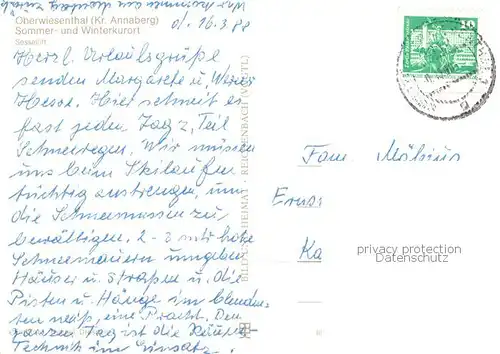 Wir kommen am Sonntag zurück
Oberwiesenthal (Kr. Annaberg)
Sommer- und Winterkurort
Sessellift
d. 16.3.88
Herzl. Urlaubsgrüße
senden Margarete u. Werner
Hesse. Hier schneit es
fast jeden Tag z. Teil
Schneeregen. Wir müssen
uns beim Skilaufen
tüchtig anstrengen, um
die Schneemassen zu
bewältigen. 2-3 mtr hohe
Schneemauern umgeben
Häuser u. Straßen u. die
Pisten u. Hänge im blenden-
ten weiß, eine Pracht. Den
ganzen Tag ist die Räum-
Technik im Einsatz.
BILD UND HEIMAT REICHENBACH (VOGTL)
10
Fam. Möbius
Ernst
Ka
privacy protection
Datenschutz